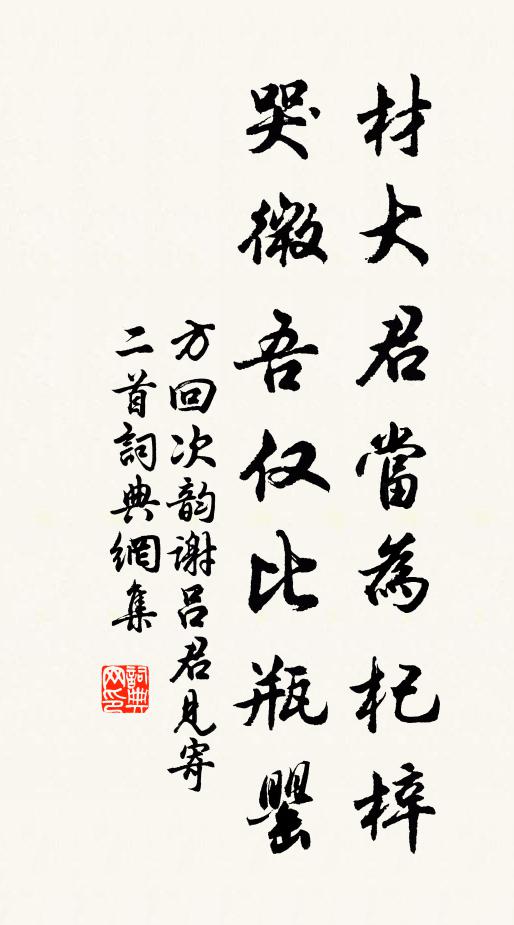 材大君當為杞梓
器微吾仅比瓶罌
方回次韵謝吕君見寄
二首詞典網集
詞典
网印